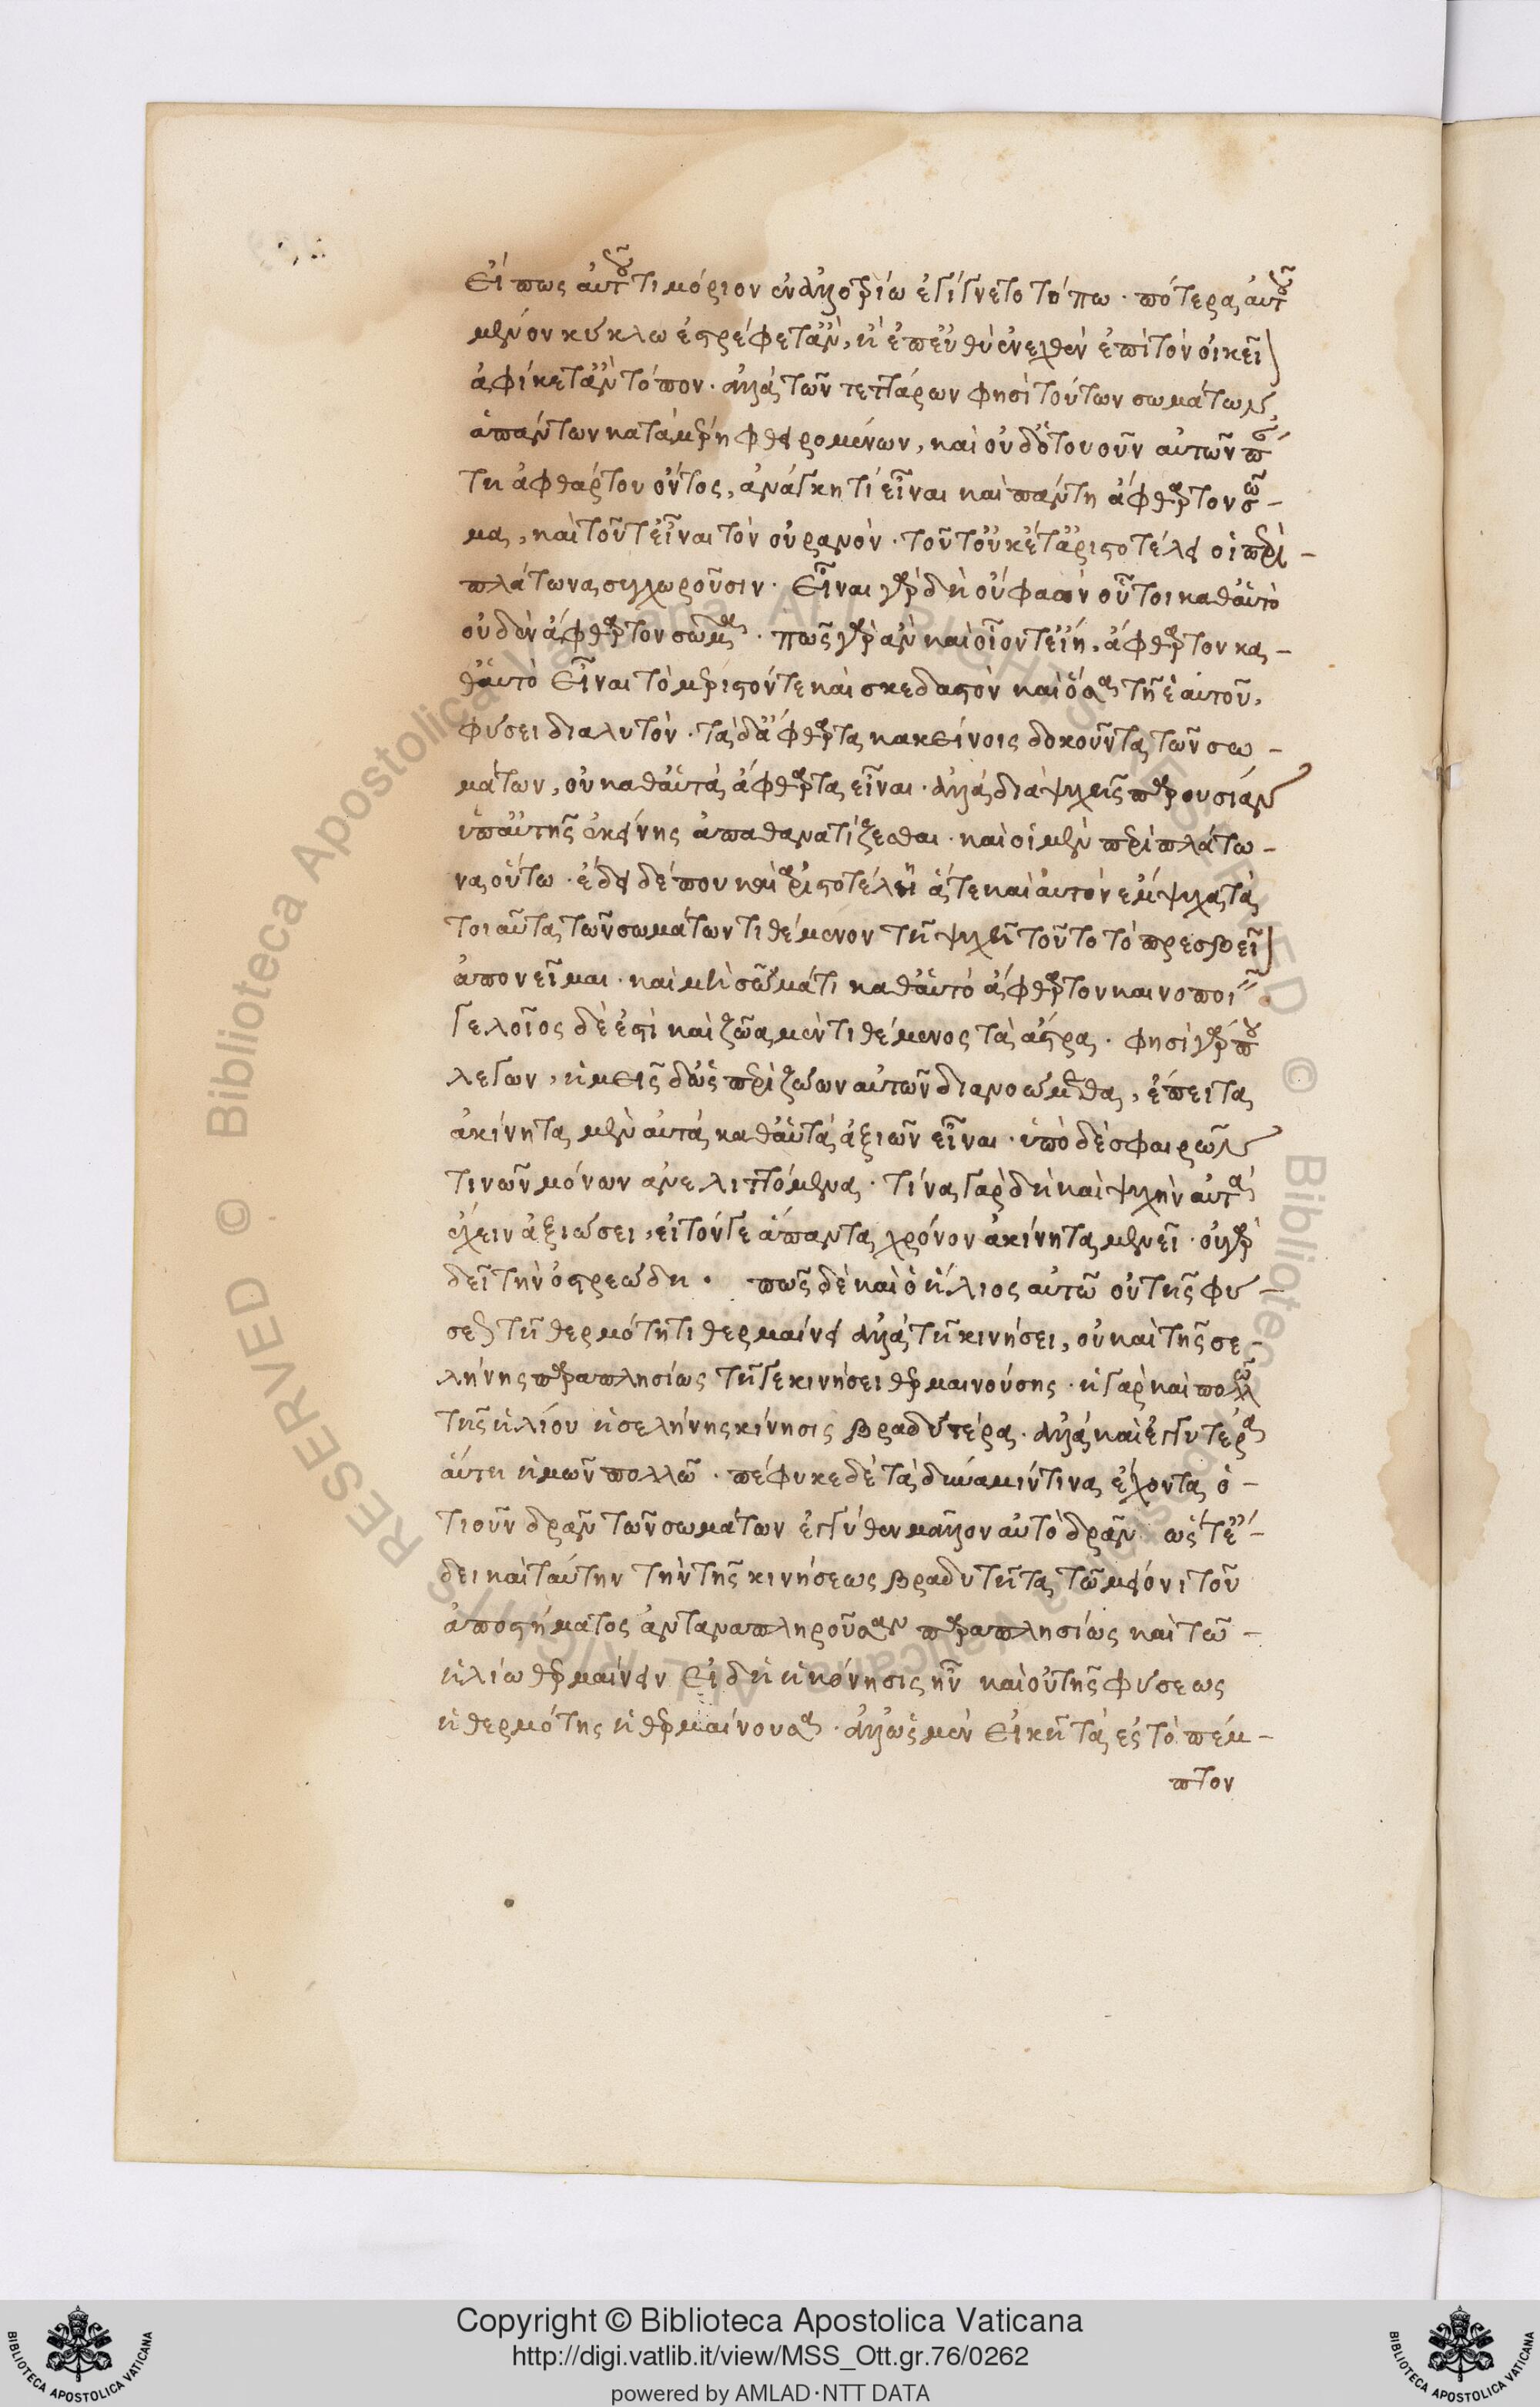 Εἴ πως αὐτοῦ τι μόριον ἐν ἀλλοτρίω ἐγίγνετο τόπω · πότερα αὐτοῦ
μένον κύκλω ἐστρέφετ' ἂν, ἢ ἐπ' εὐθὺ ἐνεχθὲν ἐπὶ τὸν οἰκεῖ
ἀφίκετ' ἂν τόπον · ἀλλὰ τῶν τεττάρων φησὶ τούτων σωμάτων,
ἁπάντων κατὰ μέρη φθειρομένων, καὶ οὐδ' ὁτουοῦν αὐτῶν π
τη ἀφθάρτου ὄντος, ἀνάγκη τὶ εἶναι καὶ πάντη ἄφθαρτον σῶ -
μα, καὶ τοῦτ' εἶναι τὸν οὐρανόν · τοῦτ' οὐκέτ' ἀριστοτέλει οἱ περὶ -
πλάτωνα συγχωροῦσιν · Εἶναι γὰρ δὴ οὔ φασιν οὗτοι καθ' αὑτὸ
οὐδὲν ἄφθαρτον σῶμα · πῶς γὰρ ἂν καὶ οἷόν τ' εἴη, ἄφθαρτον κα -
θ' αὑτὸ εἶναι τὸ μεριστόν τε καὶ σκεδαστὸν καὶ ὅσα τῆ ἑαυτοῦ,
φύσει διαλυτόν · τὰ δ' ἄφθαρτα κακείνοις δοκοῦντα τῶν σω -
μάτων, οὐ καθ' αὑτὰ ἄφθαρτα εἶναι · ἀλλὰ διὰ ψυχῆς παρουσίαν
ὑπ' αὐτῆς ἐκείνης ἀπαθανατίζεσθαι · καὶ οἱ μὲν περὶ πλάτω -
να οὕτω · ἔδει δέ που καὶ ἀριστοτέλη ἅτε καὶ αὐτὸν ἔμψυχα τὰ
τοιαῦτα τῶν σωμάτων τιθέμενον τῆ ψυχῆ τοῦτο τὸ πρεσβεῖ
ἀπονεῖμαι · καὶ μὴ σώματι καθ' αὑτὸ ἄφθαρτον καινοποι
γελοῖος δέ ἐστι καὶ ζῶα μὲν τιθέμενος τὰ ἄστρα · φησὶ γάρ που
λέγων, ἡμεῖς δ' ὡς περὶ ζώων αὐτῶν διανοώμεθα, ἔπειτα
ἀκίνητα μὲν αὐτὰ καθ' αὑτὰ ἀξιῶν εἶναι · ὑπὸ δὲ σφαιρῶν
τινῶν μόνων ἀνελιττόμενα · τίνα γὰρ δὴ καὶ ψυχὴν αὐτὰ
ἔχειν ἀξιώσει, εἰ τόν γε ἅπαντα χρόνον ἀκίνητα μενεῖ · οὐ γὰρ
δεῖ τὴν ὀστρεώδη · πῶς δὲ καὶ ὁ ἥλιος αὐτῶ οὐ τῆς φύ -
σεως τῆ θερμότητι θερμαίνει ἀλλὰ τῆ κινήσει, οὐ καὶ τῆς σε -
λήνης παραπλησίως τῆ γε κινήσει θερμαινούσης · ἡ γὰρ καὶ πολλῶ
τῆς ἡλίου ἡ σελήνης κίνησις βραδυτέρα · ἀλλὰ καὶ ἐγγυτέρα
αὕτη ἡμῶν πολλῶ · πέφυκε δὲ τὰ δύναμίν τινα ἔχοντα ὁ -
τιοῦν δρᾶν τῶν σωμάτων ἐγγύθεν μᾶλλον αὐτὸ δρᾶν ὥστ' ἔ -
δει καὶ ταύτην τὴν τῆς κινήσεως βραδυτῆτα τῶ μείονι τοῦ
ἀποστήματος ἀνταναπληροῦσαν παραπλησίως καὶ τῶ -
ἡλίω θερμαίνειν Εἰ δὴ ἡ κίνησις ἦν καὶ οὐ τῆς φύσεως
ἡ θερμότης ἡ θερμαίνουσα · ἄλλως μὲν εἰκῆ τὰ ἐς τὸ πέμ -
πτον
Copyright © Biblioteca Apostolica Vaticana
http://digi.vatlib.it/view/MSS_Ott.gr.76/0262
powered by AMLAD·NTT DATA